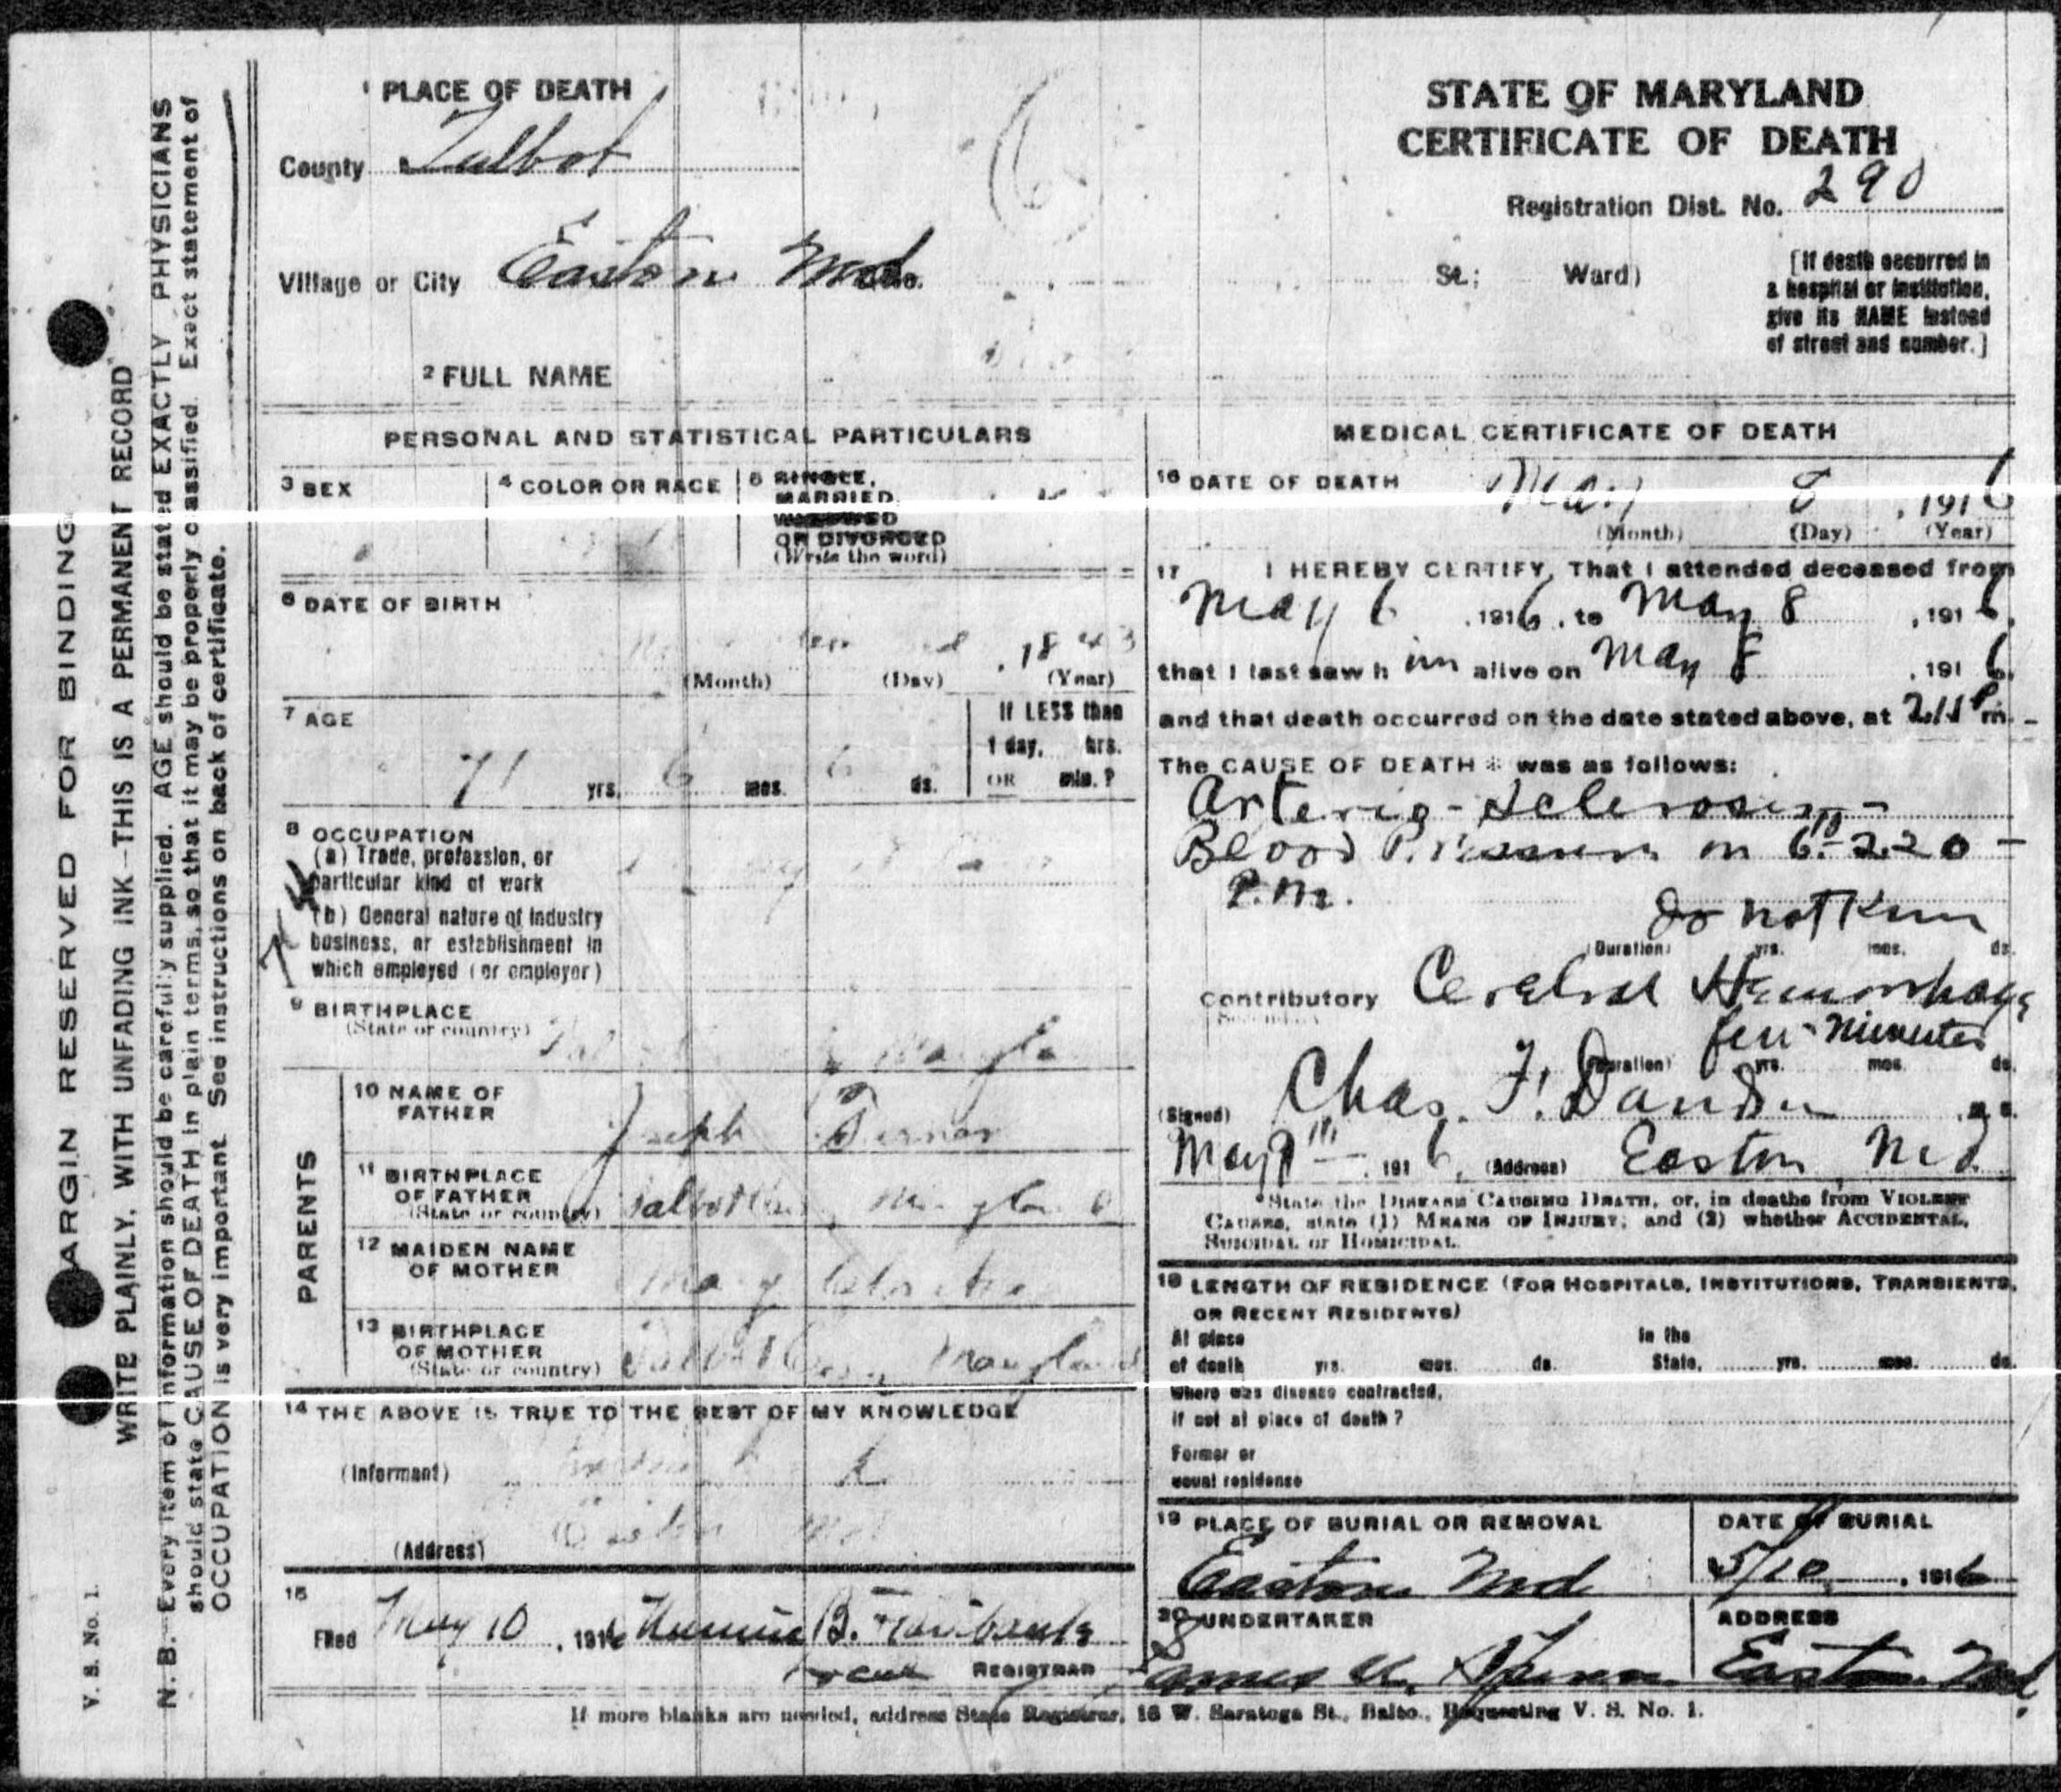 1 PLACE OF DEATH
County Talbot
Village or City Easton Md No.
STATE OF MARYLAND
CERTIFICATE OF DEATH
Registration Dist. No. 290
St.; Ward)
[If death occurred in
a hospital or institution,
give its NAME instead
of street and number.]
2 FULL NAME
PERSONAL AND STATISTICAL PARTICULARS
3 SEX
4 COLOR OR RACE
5 SINGLE,
MARRIED
WIDOWED
OR DIVORCED
(Write the word)
6 DATE OF BIRTH
, 1843
(Month) (Day) (Year)
7 AGE
71 yrs. 6 mos. 6 ds.
If LESS than
1 day, hrs.
OR min. ?
8 OCCUPATION
(a) Trade, profession, or
particular kind of work
(b) General nature of industry
business, or establishment in
which employed (or employer)
9 BIRTHPLACE
(State or country)
PARENTS
10 NAME OF
FATHER
Joseph Turner
11 BIRTHPLACE
OF FATHER
(State or country) Talbot
12 MAIDEN NAME
OF MOTHER
Mary
13 BIRTHPLACE
OF MOTHER
(State or country) Maryland
14 THE ABOVE IS TRUE TO THE BEST OF MY KNOWLEDGE
(Informant)
(Address) Easton Md
15
Filed May 10, 1916 B. Fairbanks
Local REGISTRAR
MEDICAL CERTIFICATE OF DEATH
16 DATE OF DEATH May 8, 1916
(Month) (Day) (Year)
17 I HEREBY CERTIFY, That I attended deceased from
May 6, 1916, to May 8, 1916,
that I last saw him alive on May 8, 1916,
and that death occurred on the date stated above, at P m.
The CAUSE OF DEATH * was as follows:
Arterio-Sclerosis -
Blood Pressure on 6th 220 -
P.M.
do not know
(Duration) yrs. mos. ds.
Contributory Cerebral Hemorrhage
Secondary
few minutes
(Duration) yrs. mos. ds.
(Signed) Chas. F. , M. D.
May, 1916, (Address) Easton Md
*State the DISEASE CAUSING DEATH, or, in deaths from VIOLENT
CAUSES, state (1) MEANS OF INJURY; and (2) whether ACCIDENTAL,
SUICIDAL or HOMICIDAL.
18 LENGTH OF RESIDENCE (FOR HOSPITALS, INSTITUTIONS, TRANSIENTS,
OR RECENT RESIDENTS)
At place
of death yrs. mos. ds.
In the
State, yrs. mos. ds.
Where was disease contracted,
if not at place of death?
Former or
usual residence
19 PLACE OF BURIAL OR REMOVAL
Easton Md
DATE OF BURIAL
5/10, 1916
20 UNDERTAKER
James
ADDRESS
Easton Md
If more blanks are needed, address State Registrar, 16 W. Saratoga St., Balto., Requesting V. S. No. 1.
MARGIN RESERVED FOR BINDING
WRITE PLAINLY, WITH UNFADING INK—THIS IS A PERMANENT RECORD
N. B.—Every item of information should be carefully supplied. AGE should be stated EXACTLY. PHYSICIANS
should state CAUSE OF DEATH in plain terms, so that it may be properly classified. Exact statement of
OCCUPATION is very important. See instructions on back of certificate.
V. S. No. 1.